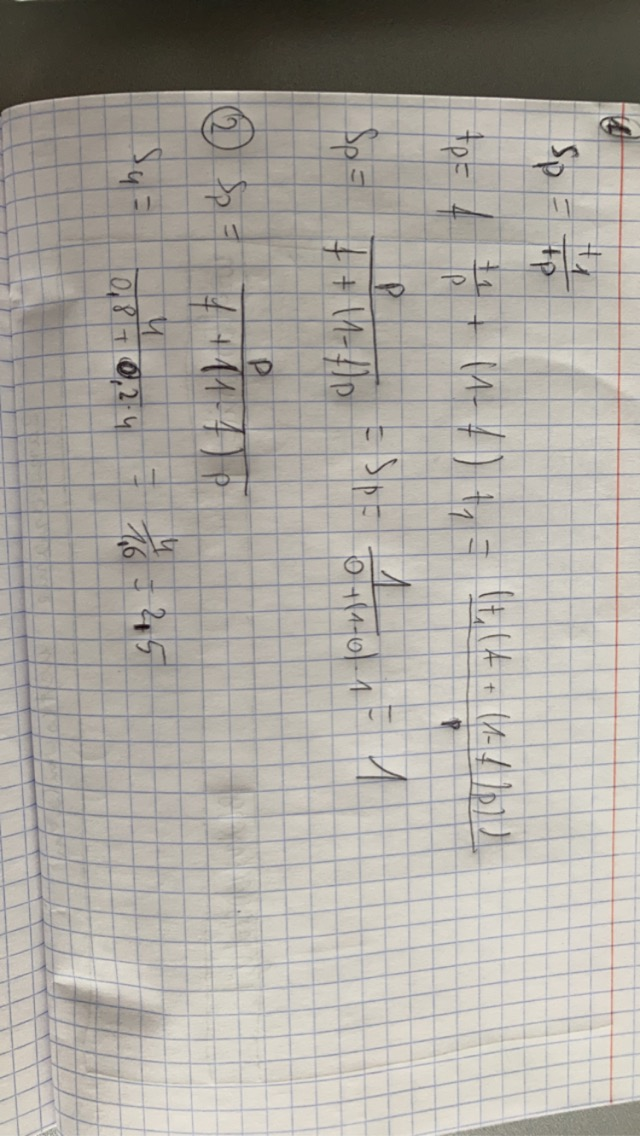 1
Sp = t1/tp
tp = f t1/p + (1-f) t1 = (t1(f + (1-f)p))/p
Sp = p/(f + (1-f)p) = Sp = 1/(0+(1-0)·1) = 1
② Sp = p/(f + (1-f)p)
S4 = 4/(0,8 + 0,2·4) = 4/1,6 = 2,5